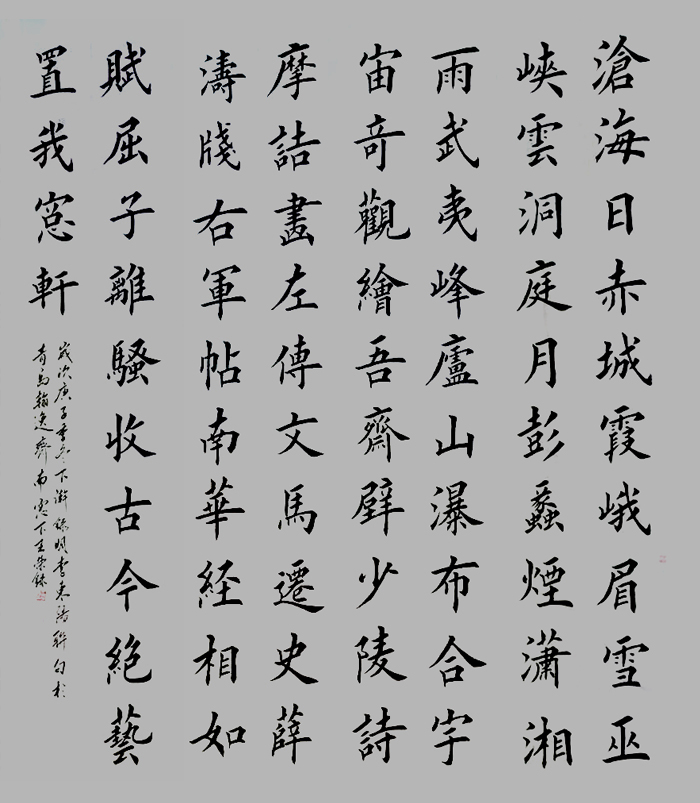 滄海日赤城霞峨眉雪巫
峽雲洞庭月彭蠡煙瀟湘
雨武夷峰廬山瀑布合宇
宙奇觀繪吾齋壁少陵詩
摩詰畫左傳文馬遷史薛
濤牋右軍帖南華経相如
賦屈子離騷收古今絶藝
置我窓軒
歲次庚子季冬下澣錄明李東陽聯句於
青島翰逸齋南窗下王